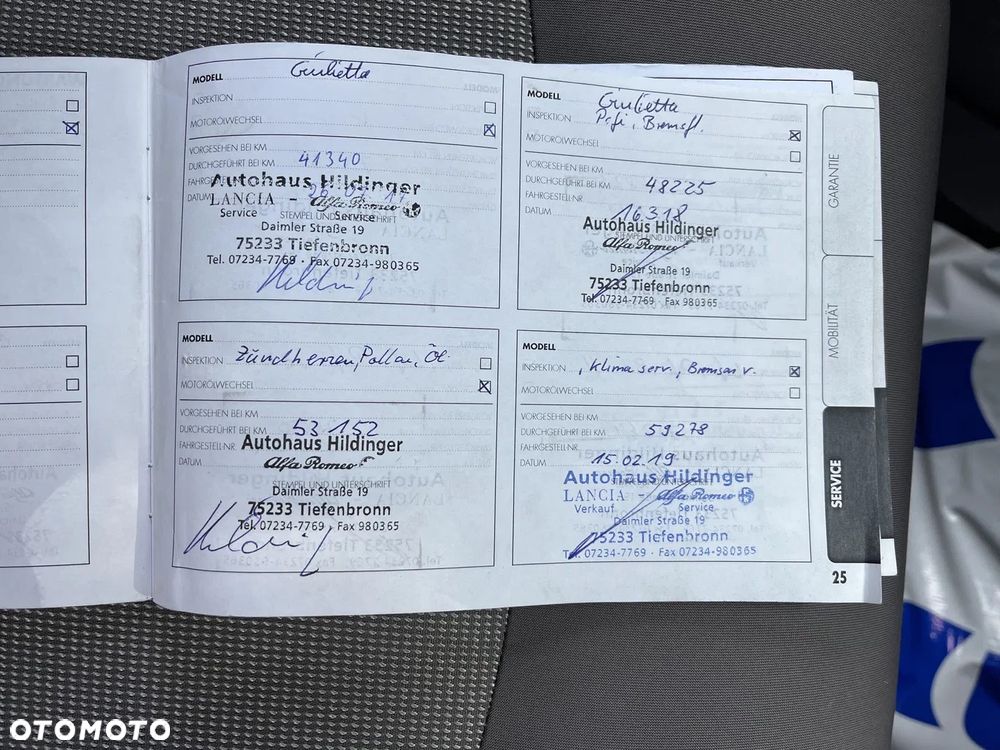 MODELL Giulietta
INSPEKTION
MOTORÖLWECHSEL
VORGESEHEN BEI KM
DURCHGEFÜHRT BEI KM 41340
DATUM
Autohaus Hildinger
LANCIA - Alfa Romeo
Service Service
STEMPEL UND UNTERSCHRIFT
Daimler Straße 19
75233 Tiefenbronn
Tel. 07234-7769 · Fax 07234-980365
MODELL Giulietta
INSPEKTION Bremsfl.
MOTORÖLWECHSEL
VORGESEHEN BEI KM
DURCHGEFÜHRT BEI KM 48225
FAHRGESTELLNR.
DATUM 16.3.18
Autohaus Hildinger
Alfa Romeo
STEMPEL UND UNTERSCHRIFT
Daimler Straße 19
75233 Tiefenbronn
Tel. 07234-7769 · Fax 980365
MODELL
INSPEKTION Zündkerzen, Pollen, Öl
MOTORÖLWECHSEL
VORGESEHEN BEI KM
DURCHGEFÜHRT BEI KM 53152
FAHRGESTELLNR.
DATUM
Autohaus Hildinger
Alfa Romeo
STEMPEL UND UNTERSCHRIFT
Daimler Straße 19
75233 Tiefenbronn
Tel. 07234-7769 · Fax 980365
MODELL
INSPEKTION , Klima serv., Bremsen v.
MOTORÖLWECHSEL
VORGESEHEN BEI KM
DURCHGEFÜHRT BEI KM 59278
FAHRGESTELLNR.
DATUM 15.02.19
Autohaus Hildinger
LANCIA - Alfa Romeo
Verkauf Service
Daimler Straße 19
75233 Tiefenbronn
Tel. 07234-7769 · Fax 07234-980365
GARANTIE
MOBILITÄT
SERVICE
25
OTOMOTO